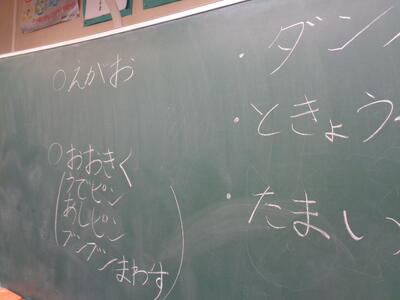 ○えがお
○おおきく
(うでピン
あしピン
ブンブンまわす)
・ダン
・ときょう
・たまい